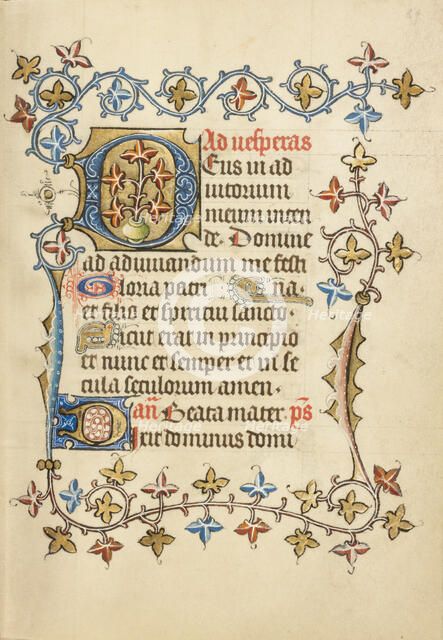 Ad uesperas
Deus in ad
iutorium
meum inten
de. Domine
ad adiuuandum me festi
Gloria patri
et filio et spiritui sancto.
Sicut erat in principio
et nunc et semper et in se
cula seculorum amen.
añ Beata mater. ps
Dixit dominus domi